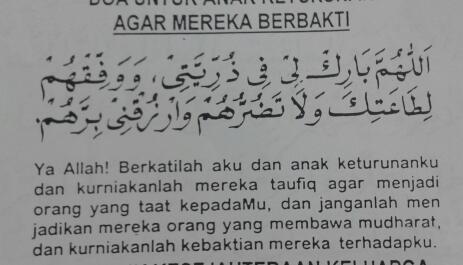 DOA UNTUK ANAK KETURUNAN
AGAR MEREKA BERBAKTI
اَللّٰهُمَّ بَارِكْ لِيْ فِيْ ذُرِّيَّتِيْ، وَوَفِّقْهُمْ
لِطَاعَتِكَ وَلَا تَضُرُّهُمْ وَارْزُقْنِيْ بِرَّهُمْ.
Ya Allah! Berkatilah aku dan anak keturunanku
dan kurniakanlah mereka taufiq agar menjadi
orang yang taat kepadaMu, dan janganlah men
jadikan mereka orang yang membawa mudharat,
dan kurniakanlah kebaktian mereka terhadapku.
KESEJAHTERAAN KELUARGA